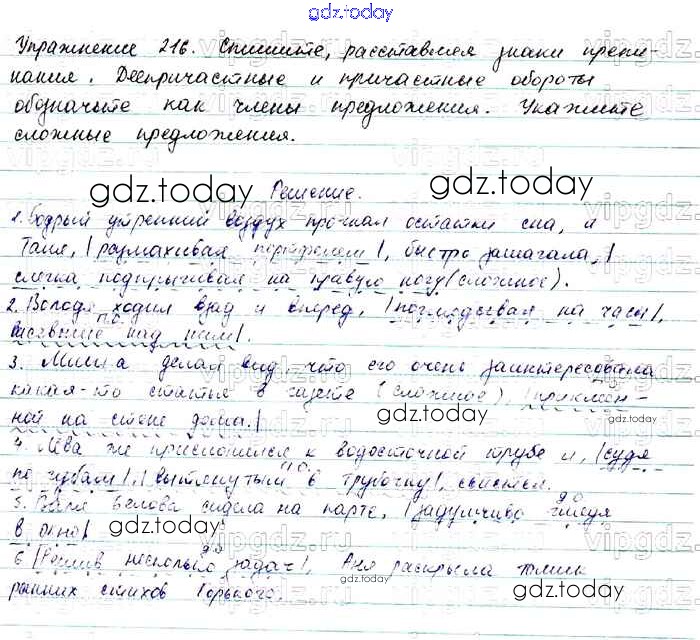 gdz.today
Упражнение 216. Спишите, расставляя знаки препи-
нания. Деепричастные и причастные обороты
обозначьте как члены предложения. Укажите
сложные предложения.
Решение.
gdz.today
gdz.today
1. Бодрый утренний воздух прогнал остатки сна, и
Таня, |размахивая портфелем|, быстро зашагала, |
слегка подпрыгивая на правую ногу (сложное).
2. Володя ходил взад и вперед, |поглядывая на часы|,
п.о.
висевшие над ним|.
3. Миша делал вид, что его очень заинтересовала
какая-то статья в газете (сложное), |приклеен-
ной на стене дома.|
gdz.today
gdz.today
4. Лёва же прислонился к водосточной трубе и, |судя
по губам|, |вытянутым в трубочку|, свистел.
п.о.
5. Валя Белова сидела на парте, |задумчиво глядя
до
в окно|
gdz.today
6. |Решив несколько задач|, Аня раскрыла томик
до
ранних стихов Горького.
gdz.today
gdz.today